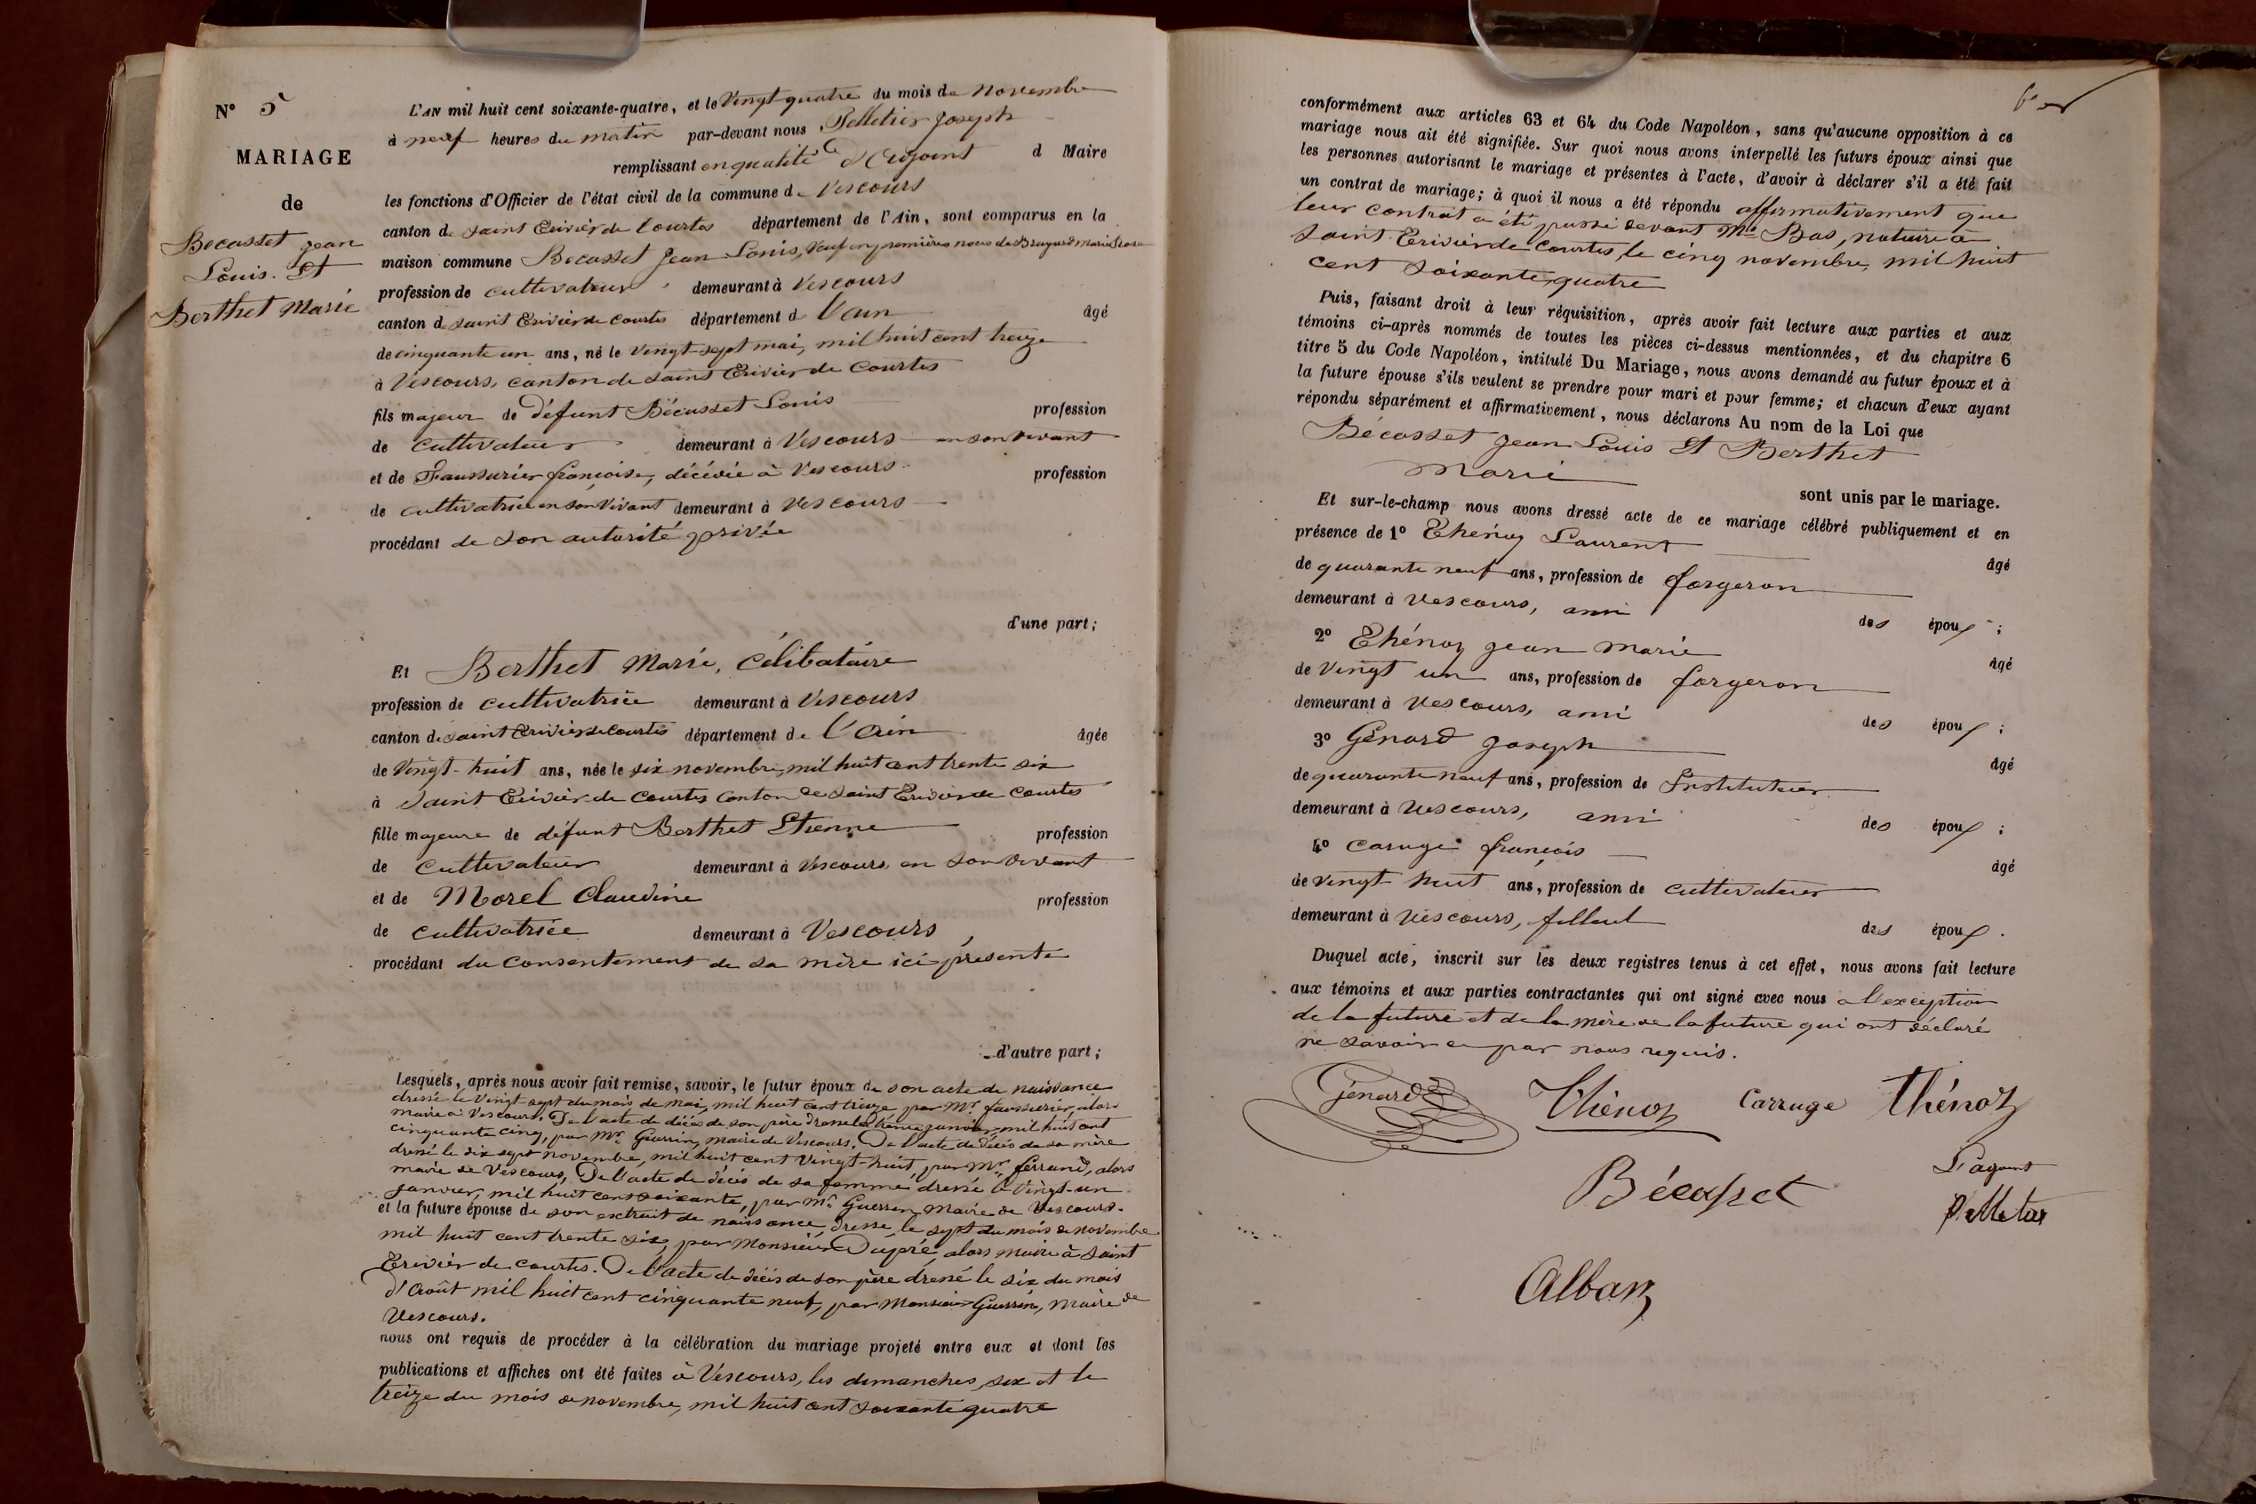 N° 5
MARIAGE
de
Becasset Jean
Louis. Et
Berthet Marie
L'AN mil huit cent soixante-quatre, et le Vingt quatre du mois de Novembre
à neuf heures du matin par-devant nous Pelletier Joseph
remplissant en qualité d'Adjoint d Maire
les fonctions d'Officier de l'état civil de la commune de Vescours
canton de Saint Trivier de Courtes département de l'Ain, sont comparus en la
maison commune Becasset Jean Louis, Veuf en premières noces de Marie
profession de cultivateur demeurant à Vescours
canton de Saint Trivier de Courtes département de l'ain âgé
de cinquante un ans, né le vingt-sept mai, mil huit cent treize
à Vescours, canton de Saint Trivier de Courtes
fils majeur de défunt Bécasset Louis profession
de cultivateur demeurant à Vescours en son vivant
et de Faussurier françoise, décédée à Vescours profession
de cultivatrice en son vivant demeurant à Vescours
procédant de son autorité privée
d'une part;
Et Berthet Marie, Célibataire
profession de cultivatrice demeurant à Vescours
canton de Saint Trivier de Courtes département de l'Ain âgée
de Vingt-huit ans, née le six novembre, mil huit cent trente six
à Saint Trivier de Courtes Canton de Saint Trivier de Courtes
fille majeure de défunt Berthet Etienne profession
de cultivateur demeurant à Vescours en son vivant
et de Morel Claudine profession
de cultivatrice demeurant à Vescours,
procédant du consentement de sa mère ici présente
d'autre part;
Lesquels, après nous avoir fait remise, savoir, le futur époux de son acte de naissance
dressé le Vingt-sept du mois de Mai, mil huit cent treize, par Mr faussurier, alors
maire à Vescours. De l'acte de décès de son père dressé le trente janvier mil huit cent
cinquante cinq, par Mr Guerrin, maire de Vescours. De l'acte de décès de sa mère
dressé le dix sept novembre, mil huit cent Vingt-huit, par Mr ferrand, alors
maire de Vescours, De l'acte de décès de sa femme dressé le Vingt-un
janvier, mil huit cent soixante, par Mr Guerrin Maire de Vescours.
et la future épouse de son extrait de naissance, dressé, le sept du mois de novembre
mil huit cent trente six, par Monsieur Dupré, alors maire à Saint
Trivier de Courtes. De l'acte de décès de son père dressé le six du mois
d'Août mil huit cent cinquante neuf, par Monsieur Guerrin, Maire de
Vescours.
nous ont requis de procéder à la célébration du mariage projeté entre eux et dont les
publications et affiches ont été faites à Vescours, les dimanches, six et le
treize du mois de novembre, mil huit cent soixante quatre
conformément aux articles 63 et 64 du Code Napoléon, sans qu'aucune opposition à ce
mariage nous ait été signifiée. Sur quoi nous avons interpellé les futurs époux ainsi que
les personnes autorisant le mariage et présentes à l'acte, d'avoir à déclarer s'il a été fait
un contrat de mariage; à quoi il nous a été répondu affirmativement que
leur contrat a été passé devant Me Bas, notaire à
Saint Trivier de Courtes, le cinq novembre, mil huit
cent soixante quatre
Puis, faisant droit à leur réquisition, après avoir fait lecture aux parties et aux
témoins ci-après nommés de toutes les pièces ci-dessus mentionnées, et du chapitre 6
titre 5 du Code Napoléon, intitulé Du Mariage, nous avons demandé au futur époux et à
la future épouse s'ils veulent se prendre pour mari et pour femme; et chacun d'eux ayant
répondu séparément et affirmativement, nous déclarons Au nom de la Loi que
Bécasset Jean Louis Et Berthet
Marie
sont unis par le mariage.
Et sur-le-champ nous avons dressé acte de ce mariage célébré publiquement et en
présence de 1° Thénoz Laurent âgé
de quarante neuf ans, profession de forgeron
demeurant à Vescours, ami des époux;
2° Thénoz Jean Marie âgé
de Vingt un ans, profession de forgeron
demeurant à Vescours, ami des époux;
3° Génard Joseph âgé
de quarante neuf ans, profession de Instituteur
demeurant à Vescours, ami des époux;
4° Caruge françois âgé
de vingt huit ans, profession de cultivateur
demeurant à Vescours, filleul des époux.
Duquel acte, inscrit sur les deux registres tenus à cet effet, nous avons fait lecture
aux témoins et aux parties contractantes qui ont signé avec nous à l'exception
de la future et de la mère de la future qui ont déclaré
ne savoir en par nous requis.
Génard Thénoz Carruge Thénoz
L'adjoint
Bécasset Pelletier
Alban